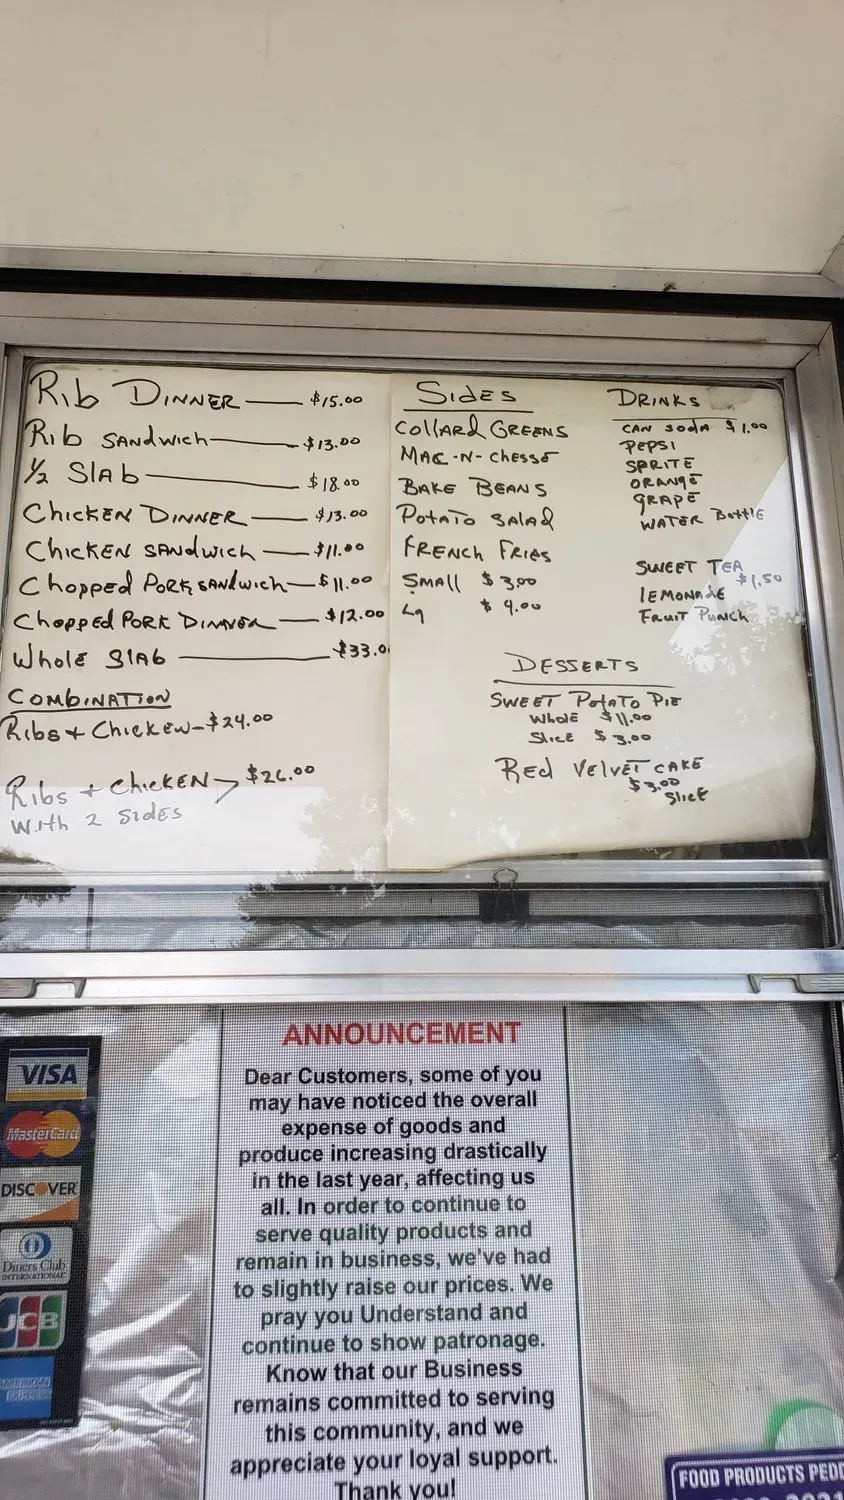 Rib DINNER — $15.00
Rib SANDWICH — $13.00
½ SlAb — $18.00
CHICKEN DINNER — $13.00
CHICKEN SANDWICH — $11.00
Chopped PORK SANDWICH — $11.00
Chopped PORK DINNER — $12.00
Whole SlAb — $33.0
COMBINATION
Ribs + CHICKEN — $24.00
Ribs + CHICKEN $26.00
WITH 2 SIDES
SIdES
COllARd GREENS
MAC-N-CHESSE
BAKE BEANS
POTATO SALAd
FRENCH FRIES
SMAll $3.00
Lg $4.00
DRINKS
CAN SOdA $1.00
PEPSI
SPRITE
ORANGE
GRAPE
WATER BottlE
SWEET TEA
$1.50
lEMONAdE
FRUIT PUNCH
DESSERTS
SWEET POTATO PIE
WHOLE $11.00
SlicE $3.00
REd VElVET CAKE
$3.00
SlicE
ANNOUNCEMENT
Dear Customers, some of you
may have noticed the overall
expense of goods and
produce increasing drastically
in the last year, affecting us
all. In order to continue to
serve quality products and
remain in business, we've had
to slightly raise our prices. We
pray you Understand and
continue to show patronage.
Know that our Business
remains committed to serving
this community, and we
appreciate your loyal support.
Thank you!
VISA
MasterCard
DISCOVER
Diners Club
INTERNATIONAL
JCB
AMERICAN
EXPRESS
FOOD PRODUCTS PEDD